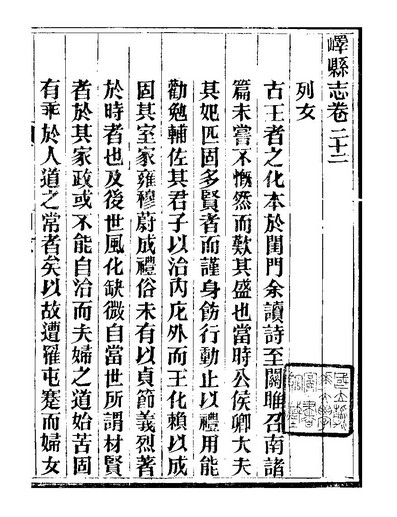 嶧縣志卷二十二
列女
古王者之化本於閨門余讀詩至關雎召南諸
篇未嘗不慨然而歎其盛也當時公侯卿大夫
其妃匹固多賢者而謹身飭行動止以禮用能
勸勉輔佐其君子以治內庇外而王化賴以成
固其室家雍穆蔚成禮俗未有以貞節義烈著
於時者也及後世風化缺微自當世所謂材賢
者於其家政或不能自治而夫婦之道始苦固
有乖於人道之常者矣以故遭罹屯蹇而婦女